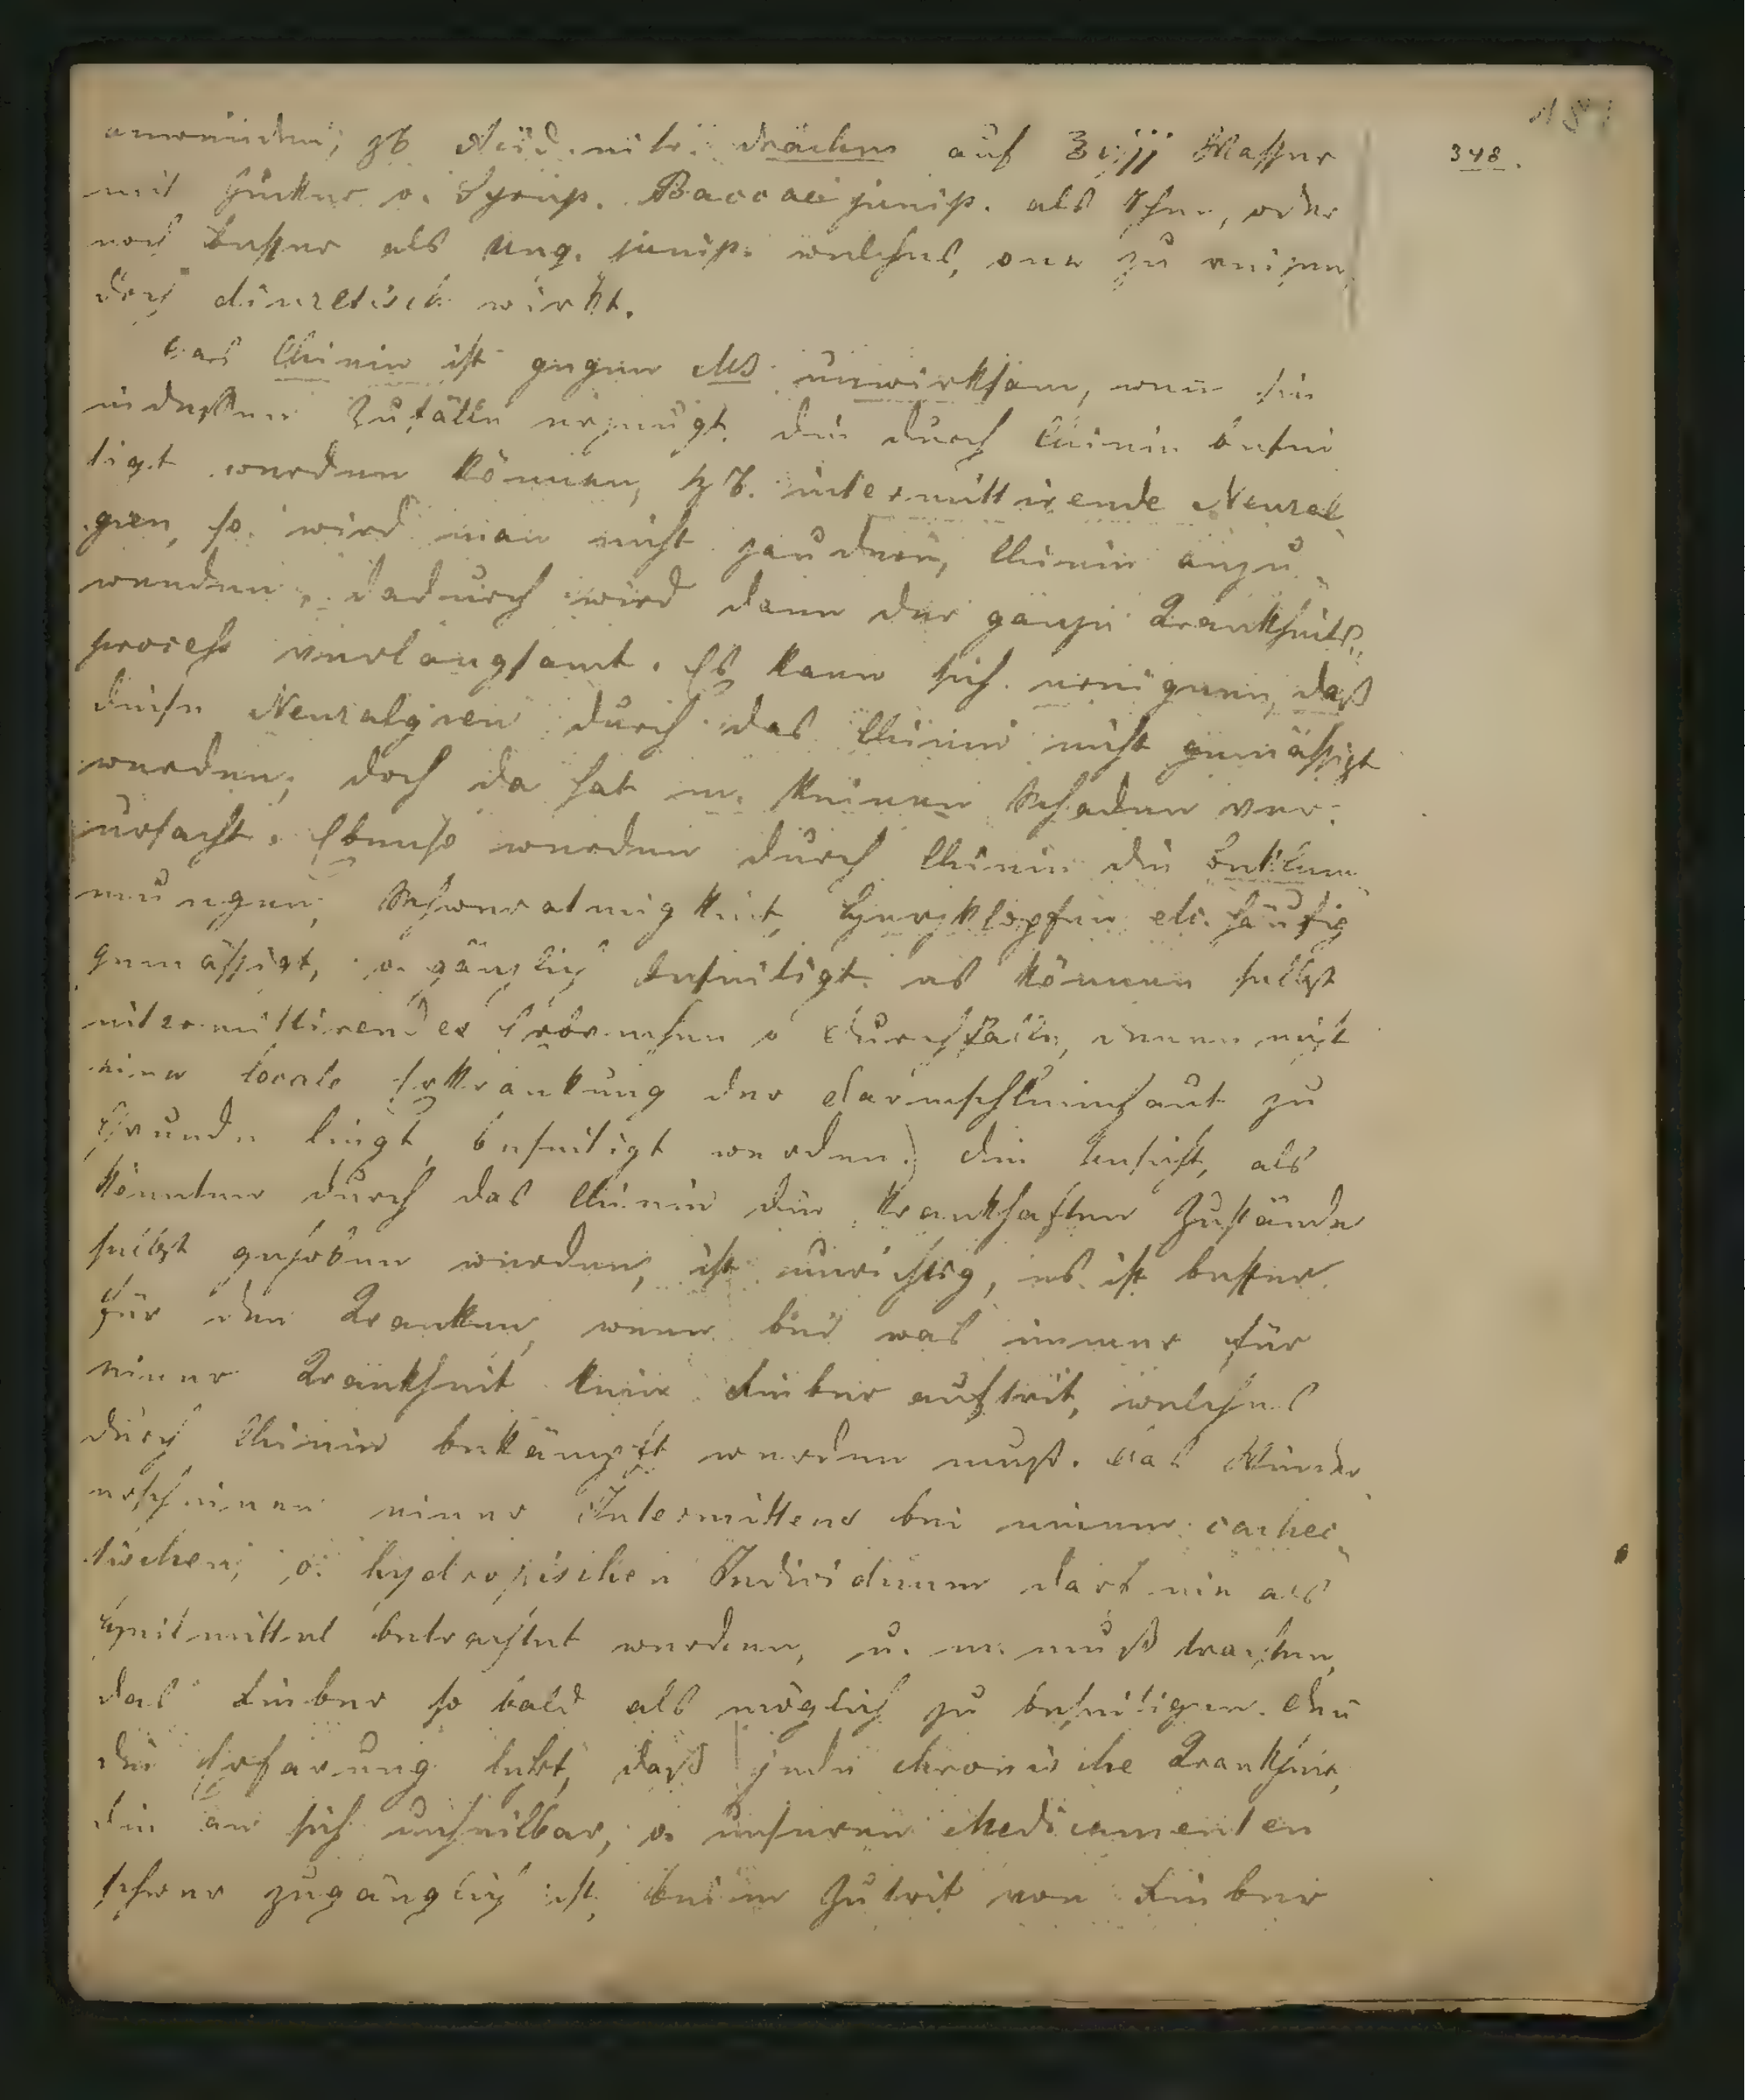 348.
anwenden; zB Acid. nitr. auf ℥vjjj Wasser
mit Zucker o. Syrup. Baccae junip. als Thee, oder
noch besser als Ung. junip. welches, one zu reizen,
doch diuretisch wirkt.
Das Chinin ist gegen MB unwirksam, wenn sie
indessen Zufälle erzeugt, die durch Chinin besei
tigt werden können, zB. intermittirende Neural
gien, so wird man nicht zaudern, Chinin anzu
wenden, dadurch wird dann der ganze Krankheits
process verlangsamt. Es kann sich ereignen, daß
diese Neuralgien durch das Chinin nicht gemässigt
werden; doch da hat m. keinen Schaden ver
ursacht. Ebenso werden durch Chinin die Beklem
mungen, Schweratmigkeit, Herzklopfen etc. häufig
gemässigt, o. gänzlich beseitigt. es können selbst
intermittirendes Erbrechen o Durchfälle, denen nicht
eine locale Erkrankung der Darmschleimhaut zu
Grunde liegt, beseitigt werden.) Die Ansicht, als
könnten durch das Chinin die krankhaften Zustände
selbst gehoben werden, ist unrichtig, es ist besser
für den Kranken, wenn bei was immer für
einer Krankheit kein Fieber auftrit, welches
durch Chinin bekämpft werden muß. Das Wieder
erscheinen einer Intermittens bei einem cachec
tischen, o. hydropischen Individuum darf nie als
Heilmittel betrachtet werden, u. m. muß trachten,
das Fieber so bald als möglich zu beseitigen. Den
die Erfarung lehrt, daß jede chronische Krankheit,
die an sich unheilbar, o. unseren Medicamenten
schwer zugänglich ist, beim Zutrit von Fieber